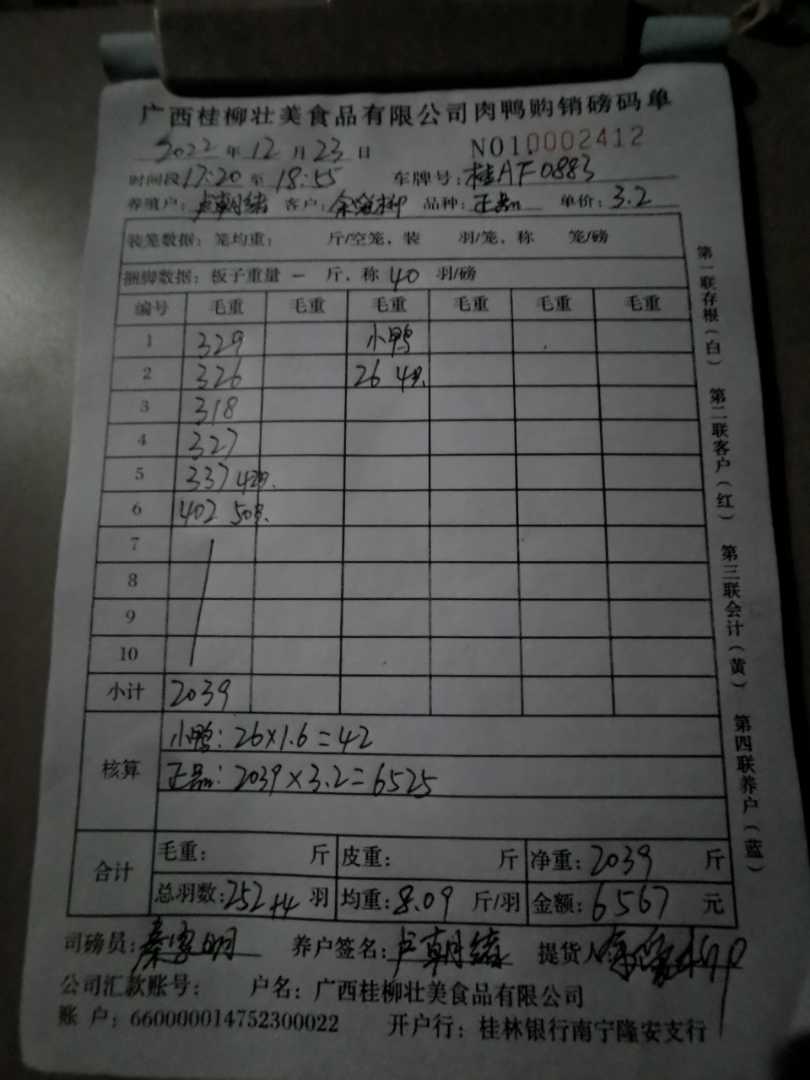 广西桂柳壮美食品有限公司肉鸭购销磅码单
2022 年 12 月 23 日 NO10002412
时间段 17:20 至 18:55 车牌号: 桂AF0883
养殖户: 卢朝绪 客户: 品种: 正品 单价: 3.2
装笼数据: 笼均重: 斤/空笼、装 羽/笼、称 笼/磅
捆脚数据: 板子重量 一 斤、称 40 羽/磅
编号 毛重 毛重 毛重 毛重 毛重 毛重
1 329 小鸭
2 326 26 4只.
3 318
4 327
5 337 42只.
6 402 50只.
7
8
9
10
小计 2039
核算
小鸭: 26×1.6=42
正品: 2039×3.2=6525
合计
毛重: 斤 皮重: 斤 净重: 2039 斤
总羽数: 252+4 羽 均重: 8.09 斤/羽 金额: 6567 元
司磅员: 秦家明 养户签名: 卢朝绪 提货人
公司汇款账号: 户名: 广西桂柳壮美食品有限公司
账 户: 660000014752300022 开户行: 桂林银行南宁隆安支行
第一联存根(白) 第二联客户(红) 第三联会计(黄) 第四联养户(蓝)